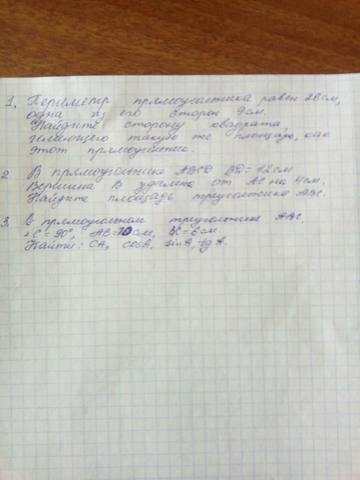 1. Периметр прямоугольника равен 26 см,
одна из его сторон 9 см.
Найдите сторону квадрата,
имеющего такую же площадь, как
этот прямоугольник.
2. В прямоугольнике ABCD BD = 12 см
Вершина B удалена от AC на 4 см.
Найдите площадь треугольника ABC.
3. В прямоугольном треугольнике ABC,
∠C = 90°, AB = 10 см, BC = 6 см
Найти: CA, cosA, sinA, tgA.